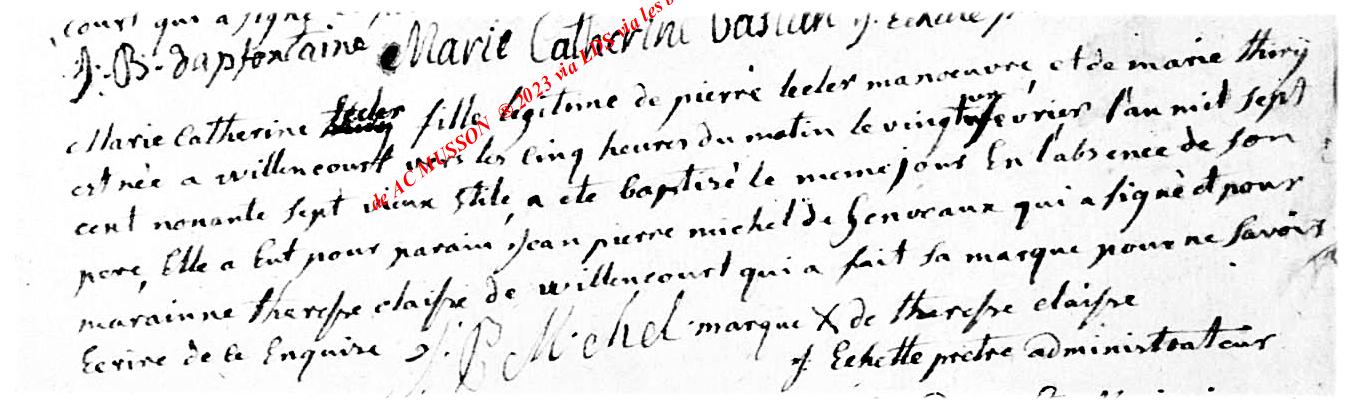 court qui a signé
J: B: dapfontaine Marie Catherine bastien J. Echette p
Marie Catherine lecler fille légitime de pierre lecler manœuvre, et de marie thirÿ
est née a willencourt vers les cinq heures du matin le vingt un fevrier l'an mil sept
cent nonante sept vieux stile, a eté baptisé le meme jour En l'absence de son
pere, Elle a Eut pour parain Jean pierre michel de henveaux qui a signé et pour
marainne theresse claisse de willencourt qui a fait sa marque pour ne savoir
Ecrire de ce Enquise J. P. Michel marque X de theresse claisse
J. Echette pretre administrateur
de AC MUSSON © 2023 via LDS via les